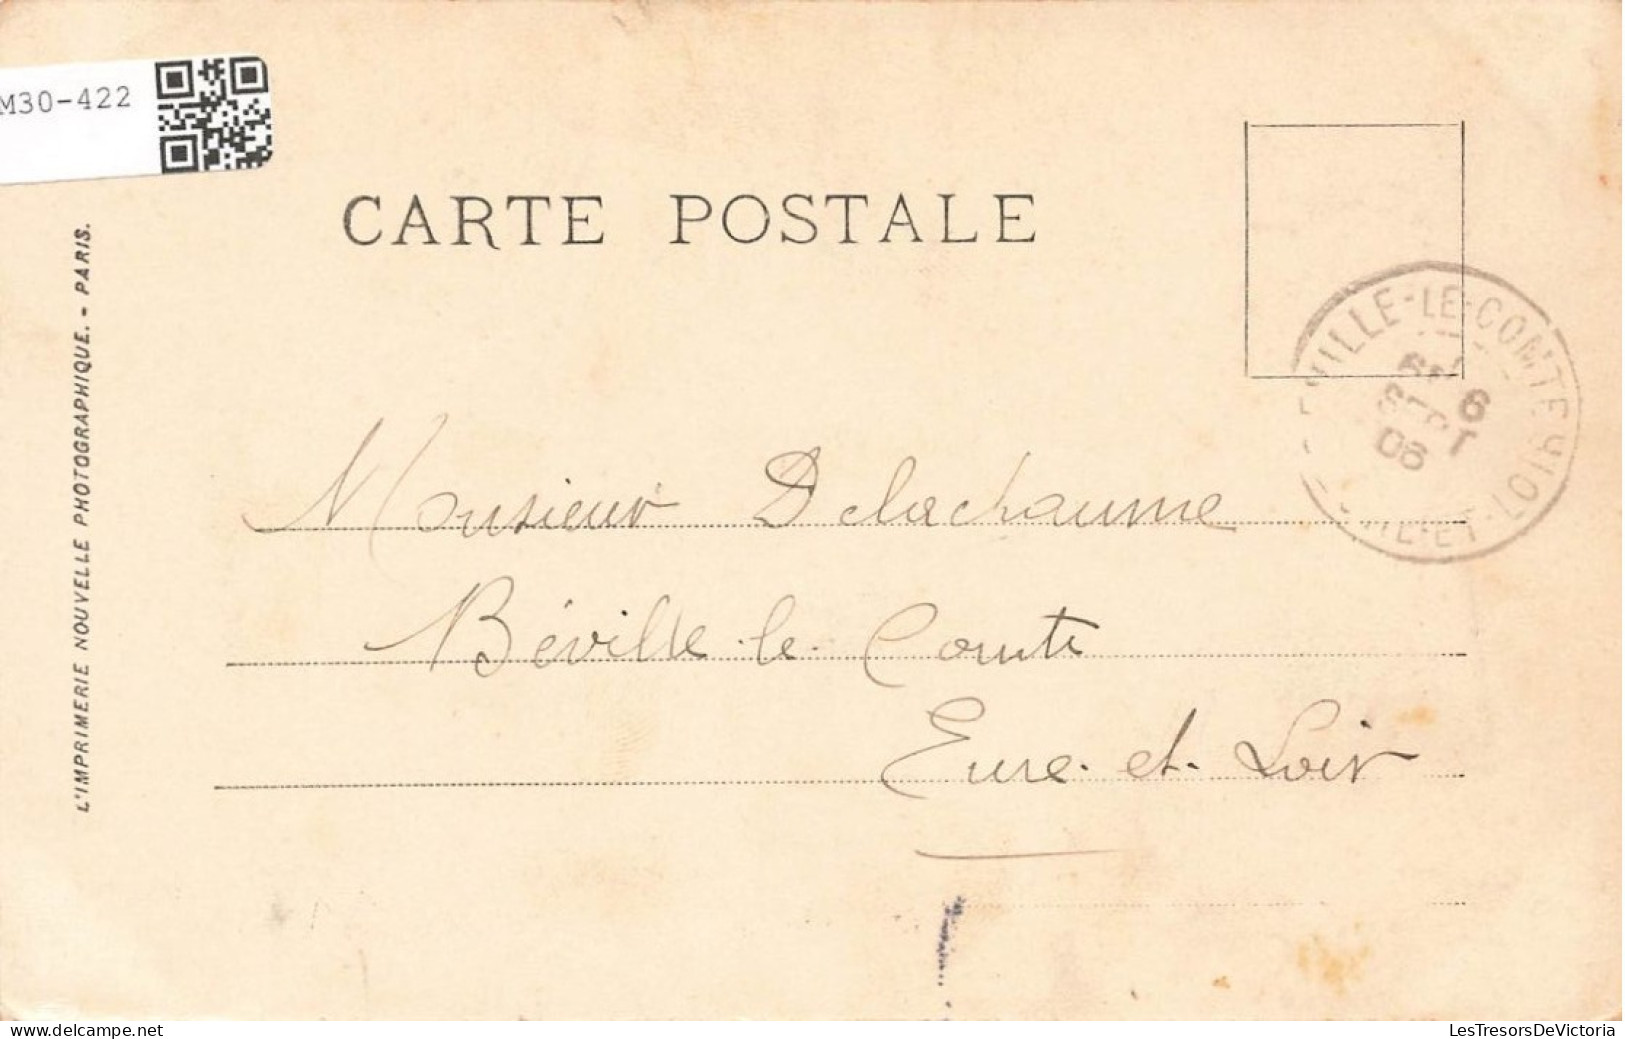 M30-422
CARTE POSTALE
L'IMPRIMERIE NOUVELLE PHOTOGRAPHIQUE. - PARIS.
VILLE-LE-COMTE
6
SEPT
06
ET-LOIR
Monsieur Delachaume
Béville-le-Comte
Eure-et-Loir
Fait avec amour par LesTresorsDeVictoria.com
LesTresorsDeVictoria